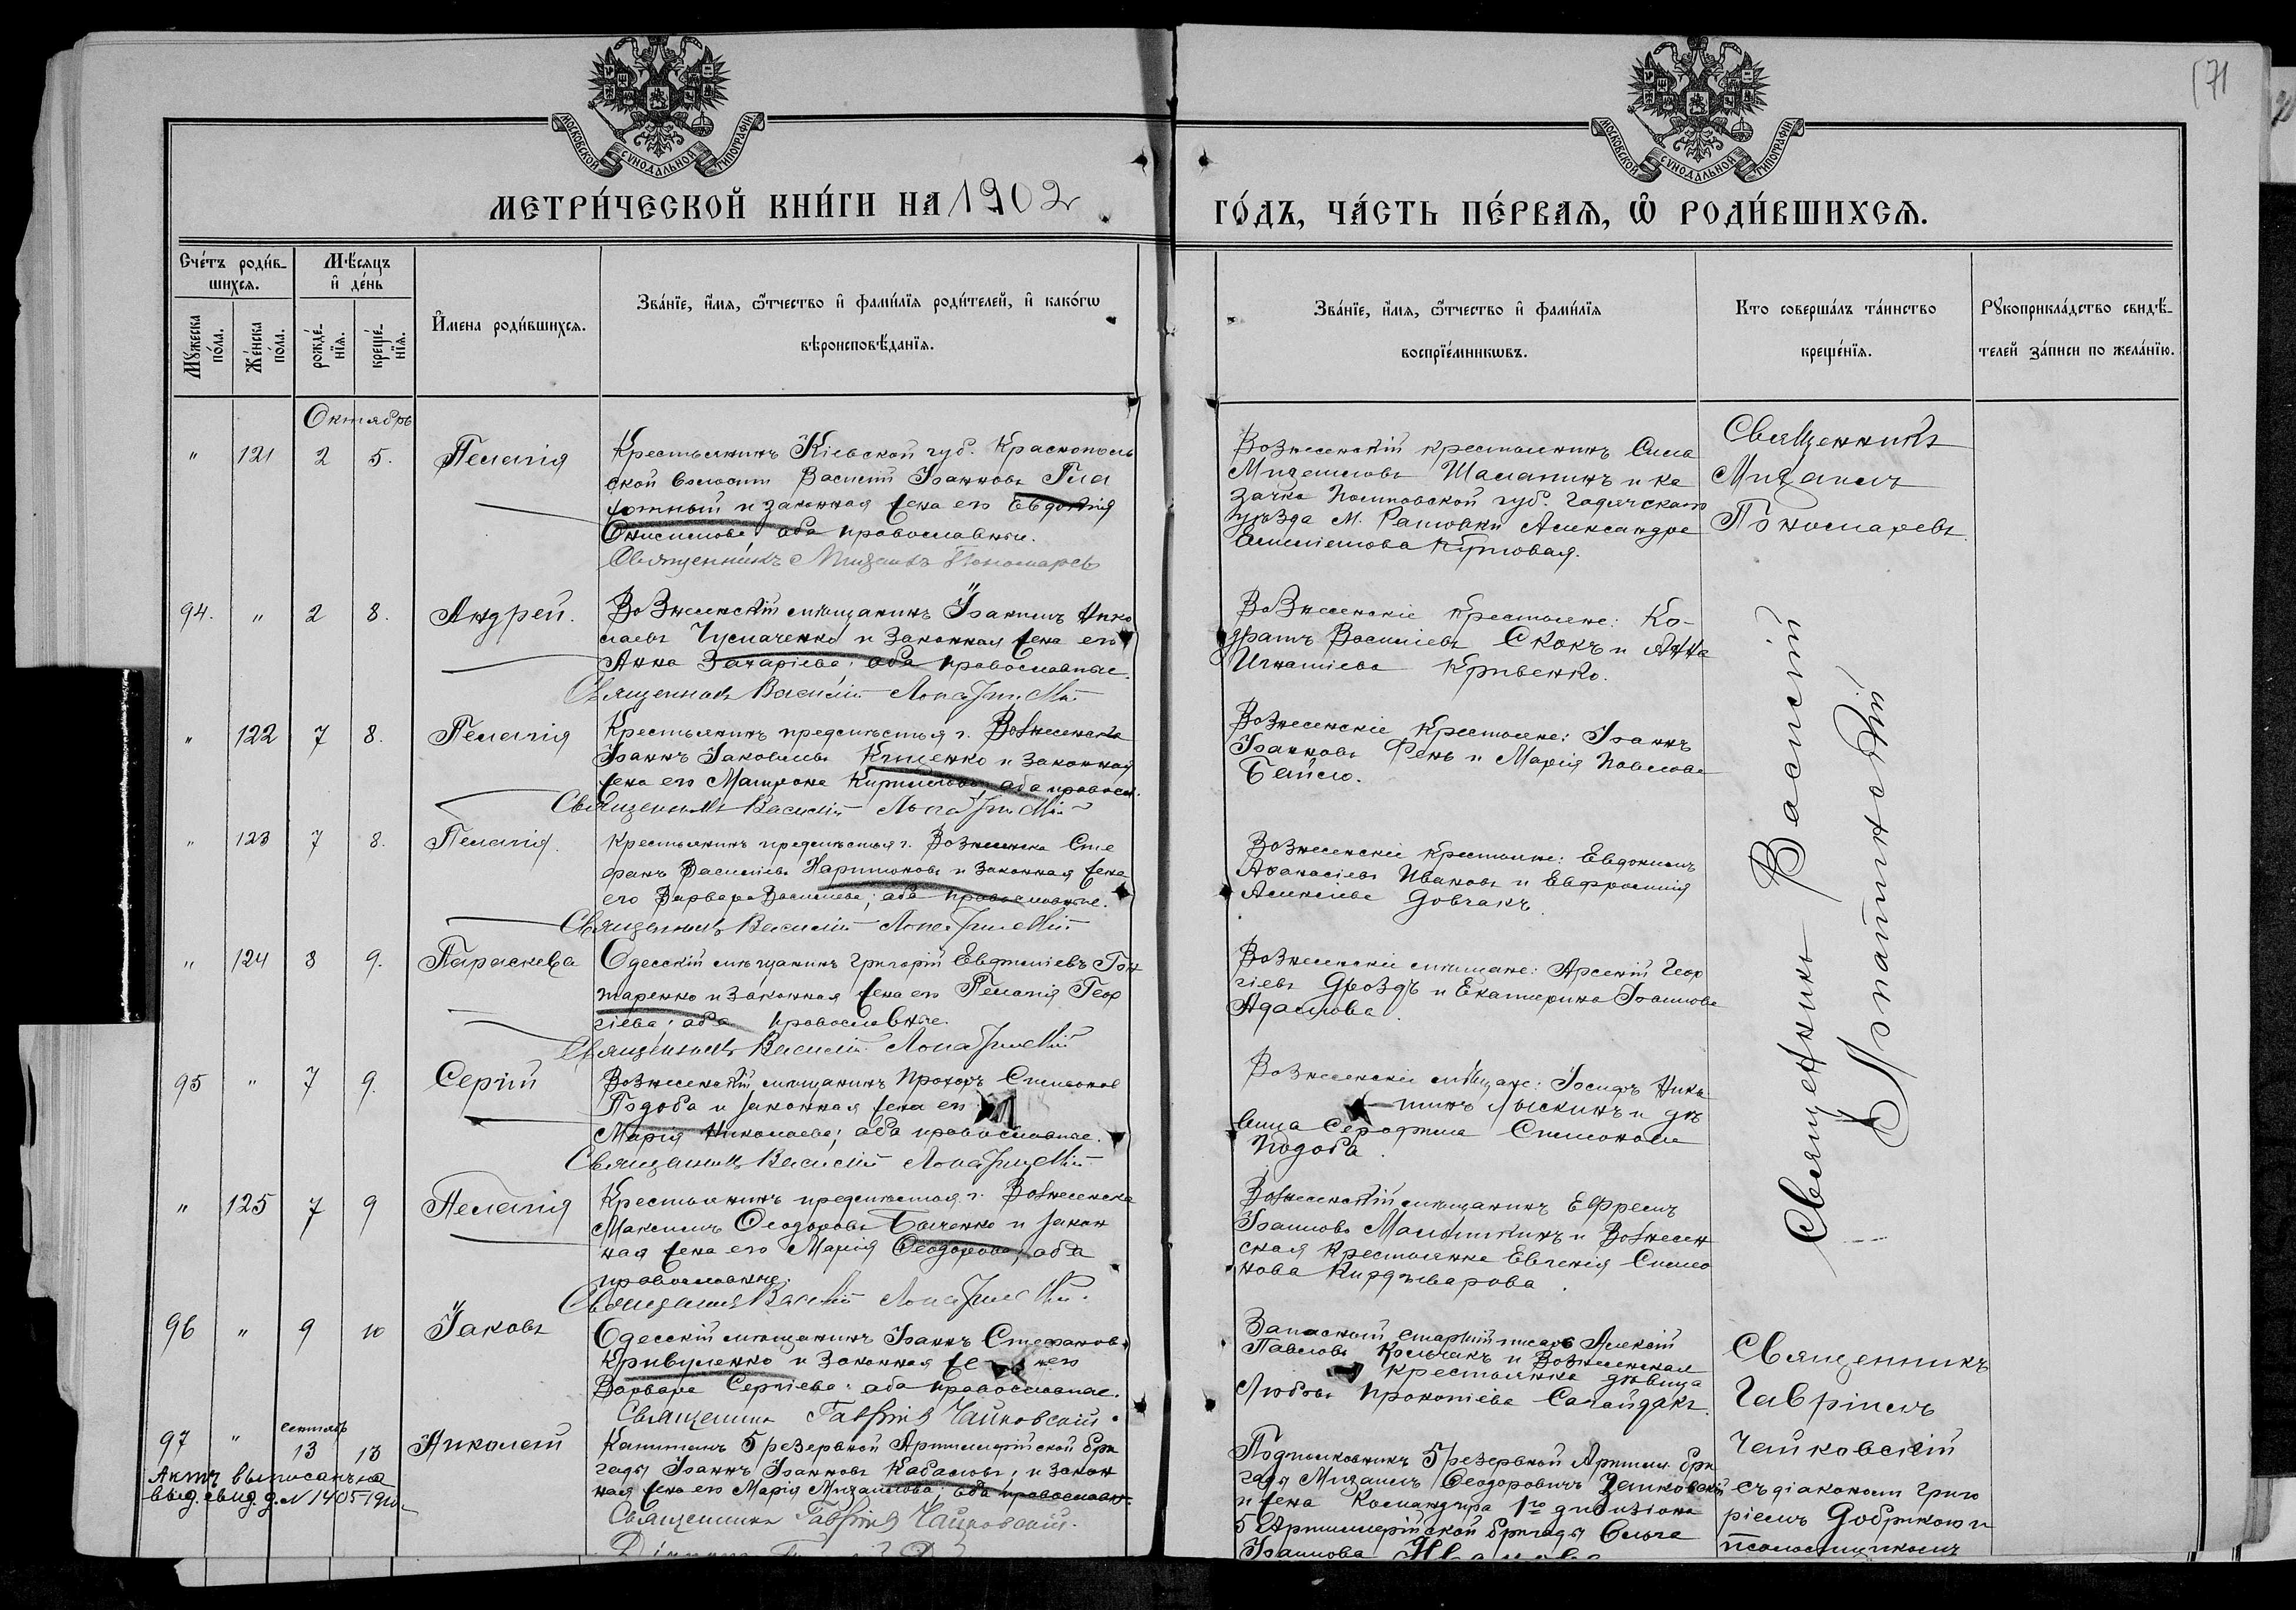 171
МОСКОВСКОЙ СѴНОДАЛЬНОЙ ТИПОГРАФІИ
МОСКОВСКОЙ СѴНОДАЛЬНОЙ ТИПОГРАФІИ
МЕТРИ́ЧЕСКОЙ КНИ́ГИ НА 1902
ГО́ДЪ, ЧА́СТЬ ПЕ́РВАѦ, Ѽ РОДИ́ВШИХСѦ.
Сче́тъ роди́в-
шихсѧ.
Мѣ́сѧцъ
и҆ де́нь
Мꙋ́жеска
по́ла.
Же́нска
по́ла.
рожде́-
нїѧ.
креще́-
нїѧ.
И҆мена роди́вшихсѧ.
Зва́нїе, и҆́мѧ, ѻ҆́тчество и҆ фами́лїѧ роди́телей, и҆ како́гѡ
вѣроисповѣ́данїѧ.
Зва́нїе, и҆́мѧ, ѻ҆́тчество и҆ фами́лїѧ
воспрїе́мникѡвъ.
Кто соверша́лъ та́инство
креще́нїѧ.
Рꙋкоприкла́дство свидѣ́-
телей за́писи по жела́нїю.
Октябрь
" 121 2 5. Пелагія
Крестьянинъ Кіевской губ. Краснополь
ской волости Василій Іоанновъ
и законная жена его Евдокія
Онисимова, оба православные.
Священникъ Михаилъ Пономаревъ
Вознесенскій крестьянинъ
Михаиловъ и ка
зачка Полтавской губ. Гадячскаго
уѣзда М. Рашовки Александра
Священникъ
Михаилъ
Пономаревъ
94. " 2 8. Андрей.
Вознесенскій мѣщанинъ Нико
лаевъ Чумаченко и законная жена его
Анна Захаріева; оба православные.
Священникъ Василій Лопатинскій
Вознесенскіе крестьяне: Ко-
дратъ Василіевъ Скокъ и Анна
Игнатіева Кривенко.
" 122 7 8. Пелагія
Крестьянинъ предмѣстья г. Вознесенска
Іоаннъ Іаковлевъ и законная
жена его Матрона Кириллова, оба правосл.
Священникъ Василій Лопатинскій
Вознесенскіе крестьяне: Іоаннъ
Іоанновъ Фень и Марія Павлова
Бейло.
" 123 7 8. Пелагія.
Крестьянинъ предмѣстья г. Вознесенска Сте
фанъ Василіевъ и законная жена
его Варвара Василіева; оба православные.
Священникъ Василій Лопатинскій
Вознесенскіе крестьяне: Евдокимъ
Аѳанасіевъ Ивановъ и Евфросинія
Алексіева Довгакъ.
" 124 8 9. Параскева
Одесскій мѣщанинъ Григорій Евфиміевъ Гон
таренко и законная жена его Пелагія Геор
гіева; оба православные.
Священникъ Василій Лопатинскій
Вознесенскіе мѣщане: Арсеній Геор
гіевъ Дроздъ и Екатерина Іоаннова
Адамова.
95 " 7 9. Сергій
Вознесенскій мѣщанинъ Прохоръ Симеоновъ
Подоба и законная жена его
Марія Николаева; оба православные.
Священникъ Василій Лопатинскій
Вознесенскіе мѣщане: Іосифъ Ники
тинъ Лыскинъ и дѣ
вица Серафима Симонова
Подоба.
" 125 7 9 Пелагія
Крестьянинъ предмѣстья г. Вознесенска
Максимъ Ѳеодоровъ Бойченко и закон
ная жена его Марія Ѳеодорова, оба
православные.
Священникъ Василій Лопатинскій
Вознесенскій мѣщанинъ Ефремъ
Іоанновъ и Вознесен
ская крестьянка Евгенія Симео
нова
Священникъ Василій
Лопатинскій
96 " 9 10 Іаковъ
Одесскій мѣщанинъ Іоаннъ Стефановъ
Кривуленко и законная жена его
Варвара Сергіева; оба православные.
Священникъ Гавріилъ Чайковскій.
Запасной старшій писарь Алексій
Павловъ Колычакъ и Вознесенская
крестьянка дѣвица
Любовь Прокопіева Сагайдакъ.
Священникъ
Гавріилъ
Чайковскій
97 " сентябрь 13 13 Николай
Актъ выписанъ на
выд. свид. д. № 1405 1910
Капитанъ 5 резервной Артиллерійской бри
гады Іоаннъ Іоанновъ Кабаловъ; и закон
ная жена его Марія Михаилова, оба православн.
Священникъ Гавріилъ Чайковскій.
Подполковникъ 5 резервной Артилл. бри
гады Михаилъ Ѳеодоровичъ
и жена Командира 1го дивизіона
5 Артиллерійской бригады Ольга
Іоаннова Иванова
съ діакономъ Григо
ріемъ Добрикою и
псаломщикомъ